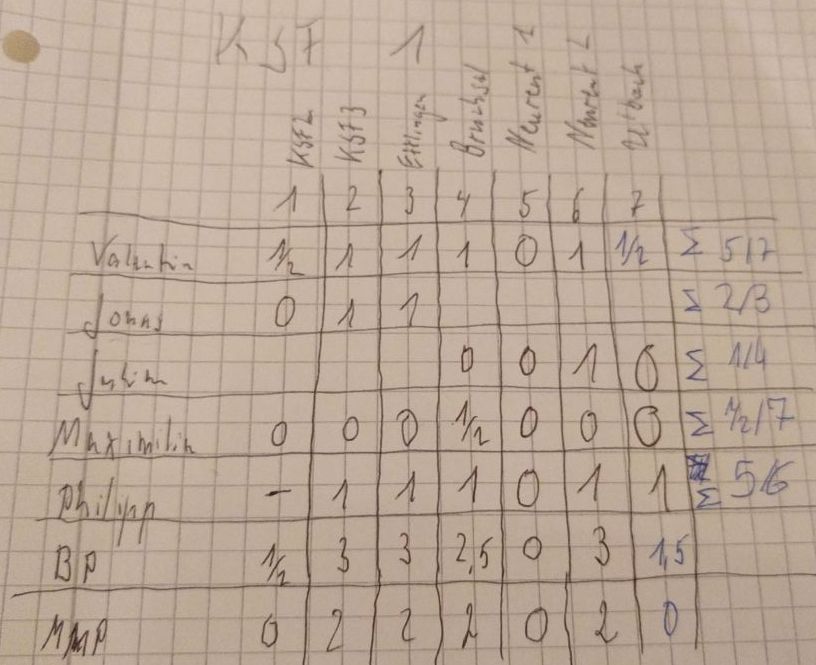 KSF 1
KSF2 KSF3 Ettlingen Bruchsal Neureut 1 Neureut 2
1 2 3 4 5 6 7
Valentin 1/2 1 1 1 0 1 1/2 Σ 5/7
Jonas 0 1 1 Σ 2/3
0 0 1 0 Σ 1/4
Maximilian 0 0 0 1/2 0 0 0 Σ 1/2/7
Philipp - 1 1 1 0 1 1 Σ 5/6
BP 1/2 3 3 2,5 0 3 1,5
MMP 0 2 2 2 0 2 0